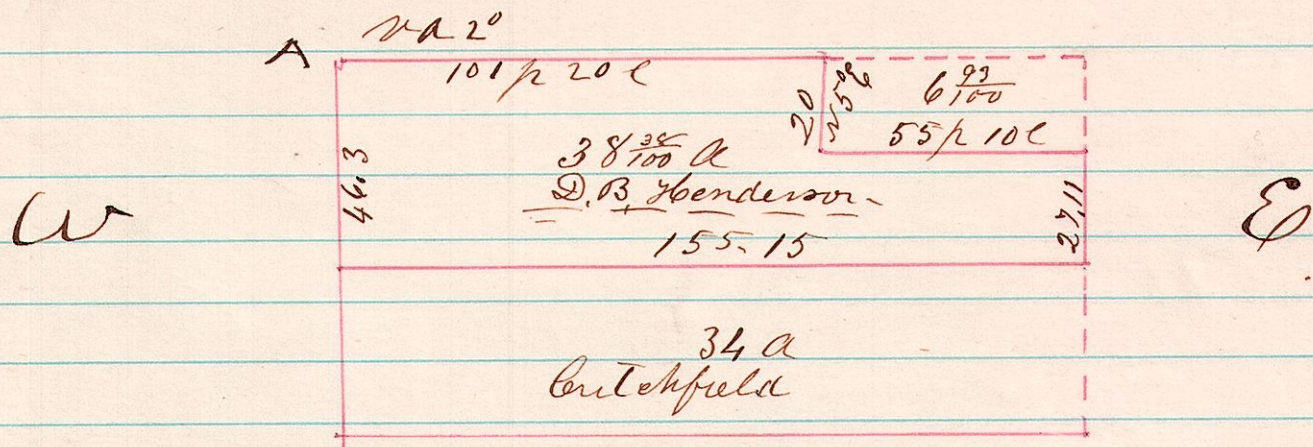 va 2°
A
101 p 20 l
20
N 5° E
6 93/100
55 p 10 l
46.3
38 38/100 a
D. B. Henderson
155.15
27.11
W
E.
34 a
Critchfield